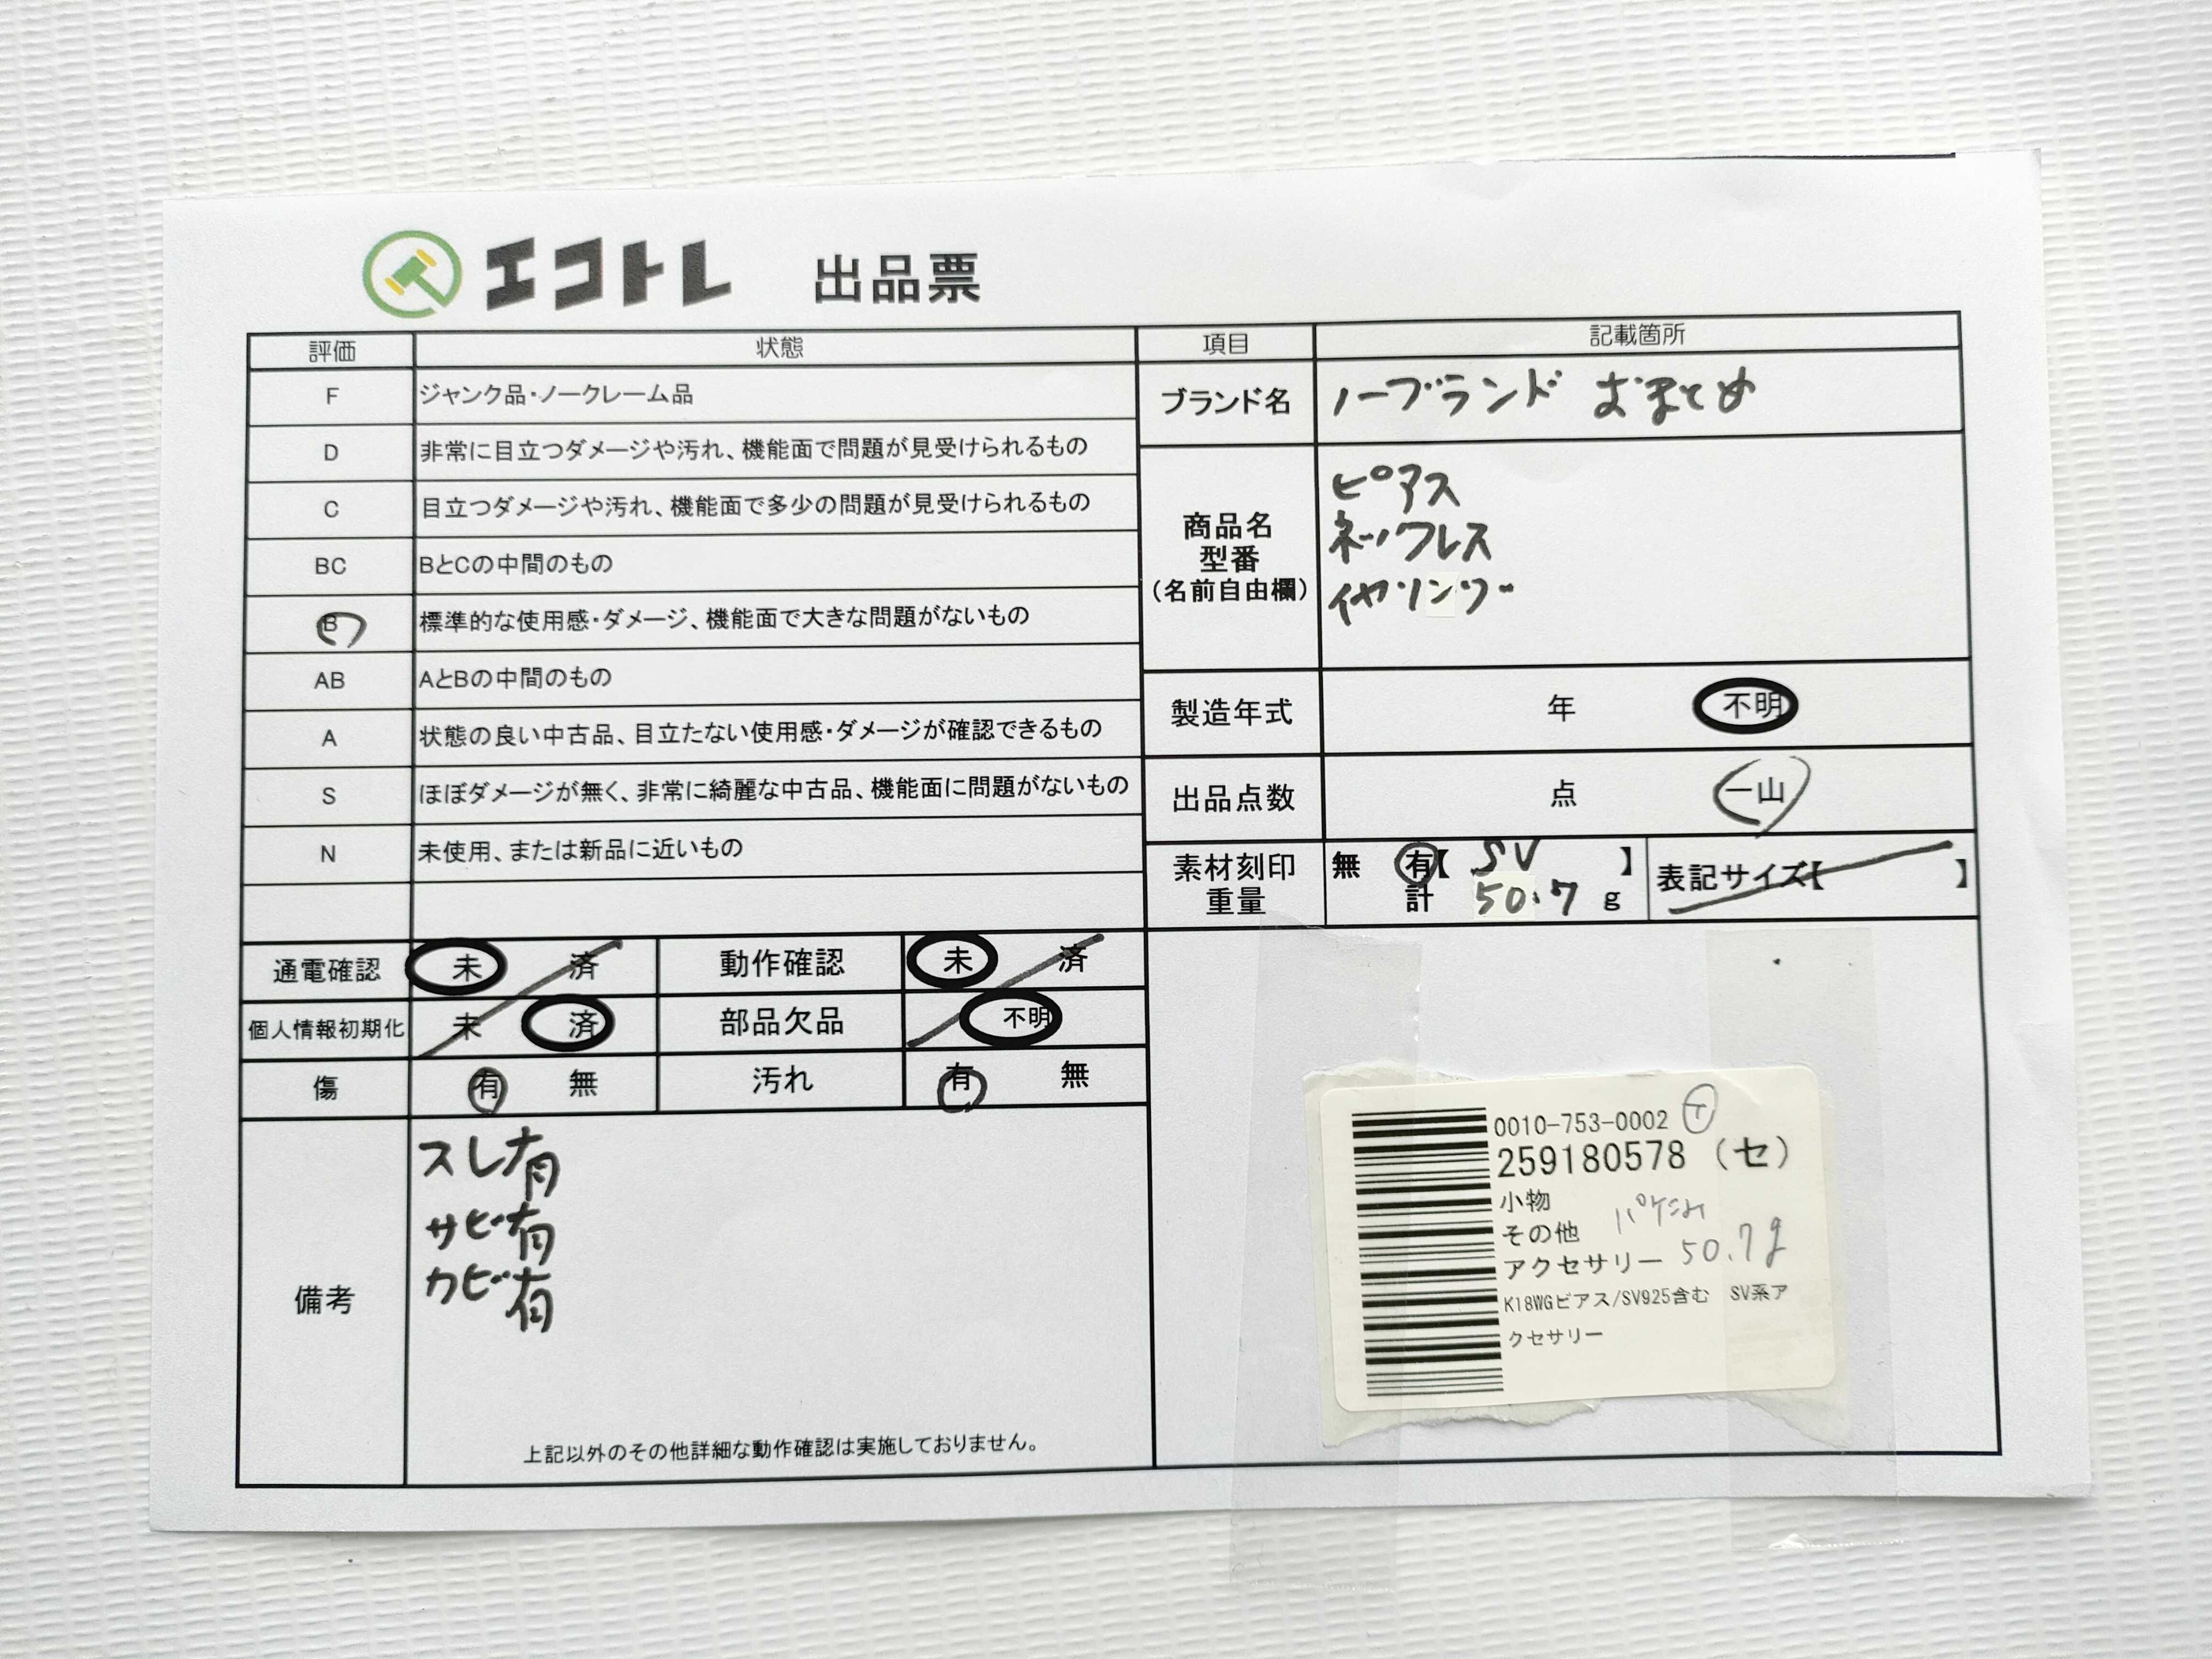 エコトレ 出品票
評価 状態
F ジャンク品・ノークレーム品
D 非常に目立つダメージや汚れ、機能面で問題が見受けられるもの
C 目立つダメージや汚れ、機能面で多少の問題が見受けられるもの
BC BとCの中間のもの
B 標準的な使用感・ダメージ、機能面で大きな問題がないもの
AB AとBの中間のもの
A 状態の良い中古品、目立たない使用感・ダメージが確認できるもの
S ほぼダメージが無く、非常に綺麗な中古品、機能面に問題がないもの
N 未使用、または新品に近いもの
項目 記載箇所
ブランド名 ノーブランド おまとめ
商品名
型番
(名前自由欄)
ピアス
ネックレス
イヤリング
製造年式 年 不明
出品点数 点 一山
素材刻印 無 有【 SV 】
重量 計 50.7 g
表記サイズ【 】
通電確認 未 済 動作確認 未 済
個人情報初期化 未 済 部品欠品 不明
傷 有 無 汚れ 有 無
備考
スレ有
サビ有
カビ有
上記以外のその他詳細な動作確認は実施しておりません。
0010-753-0002
259180578 (セ)
小物
その他
アクセサリー 50.7g
K18WGピアス/SV925含む SV系ア
クセサリー